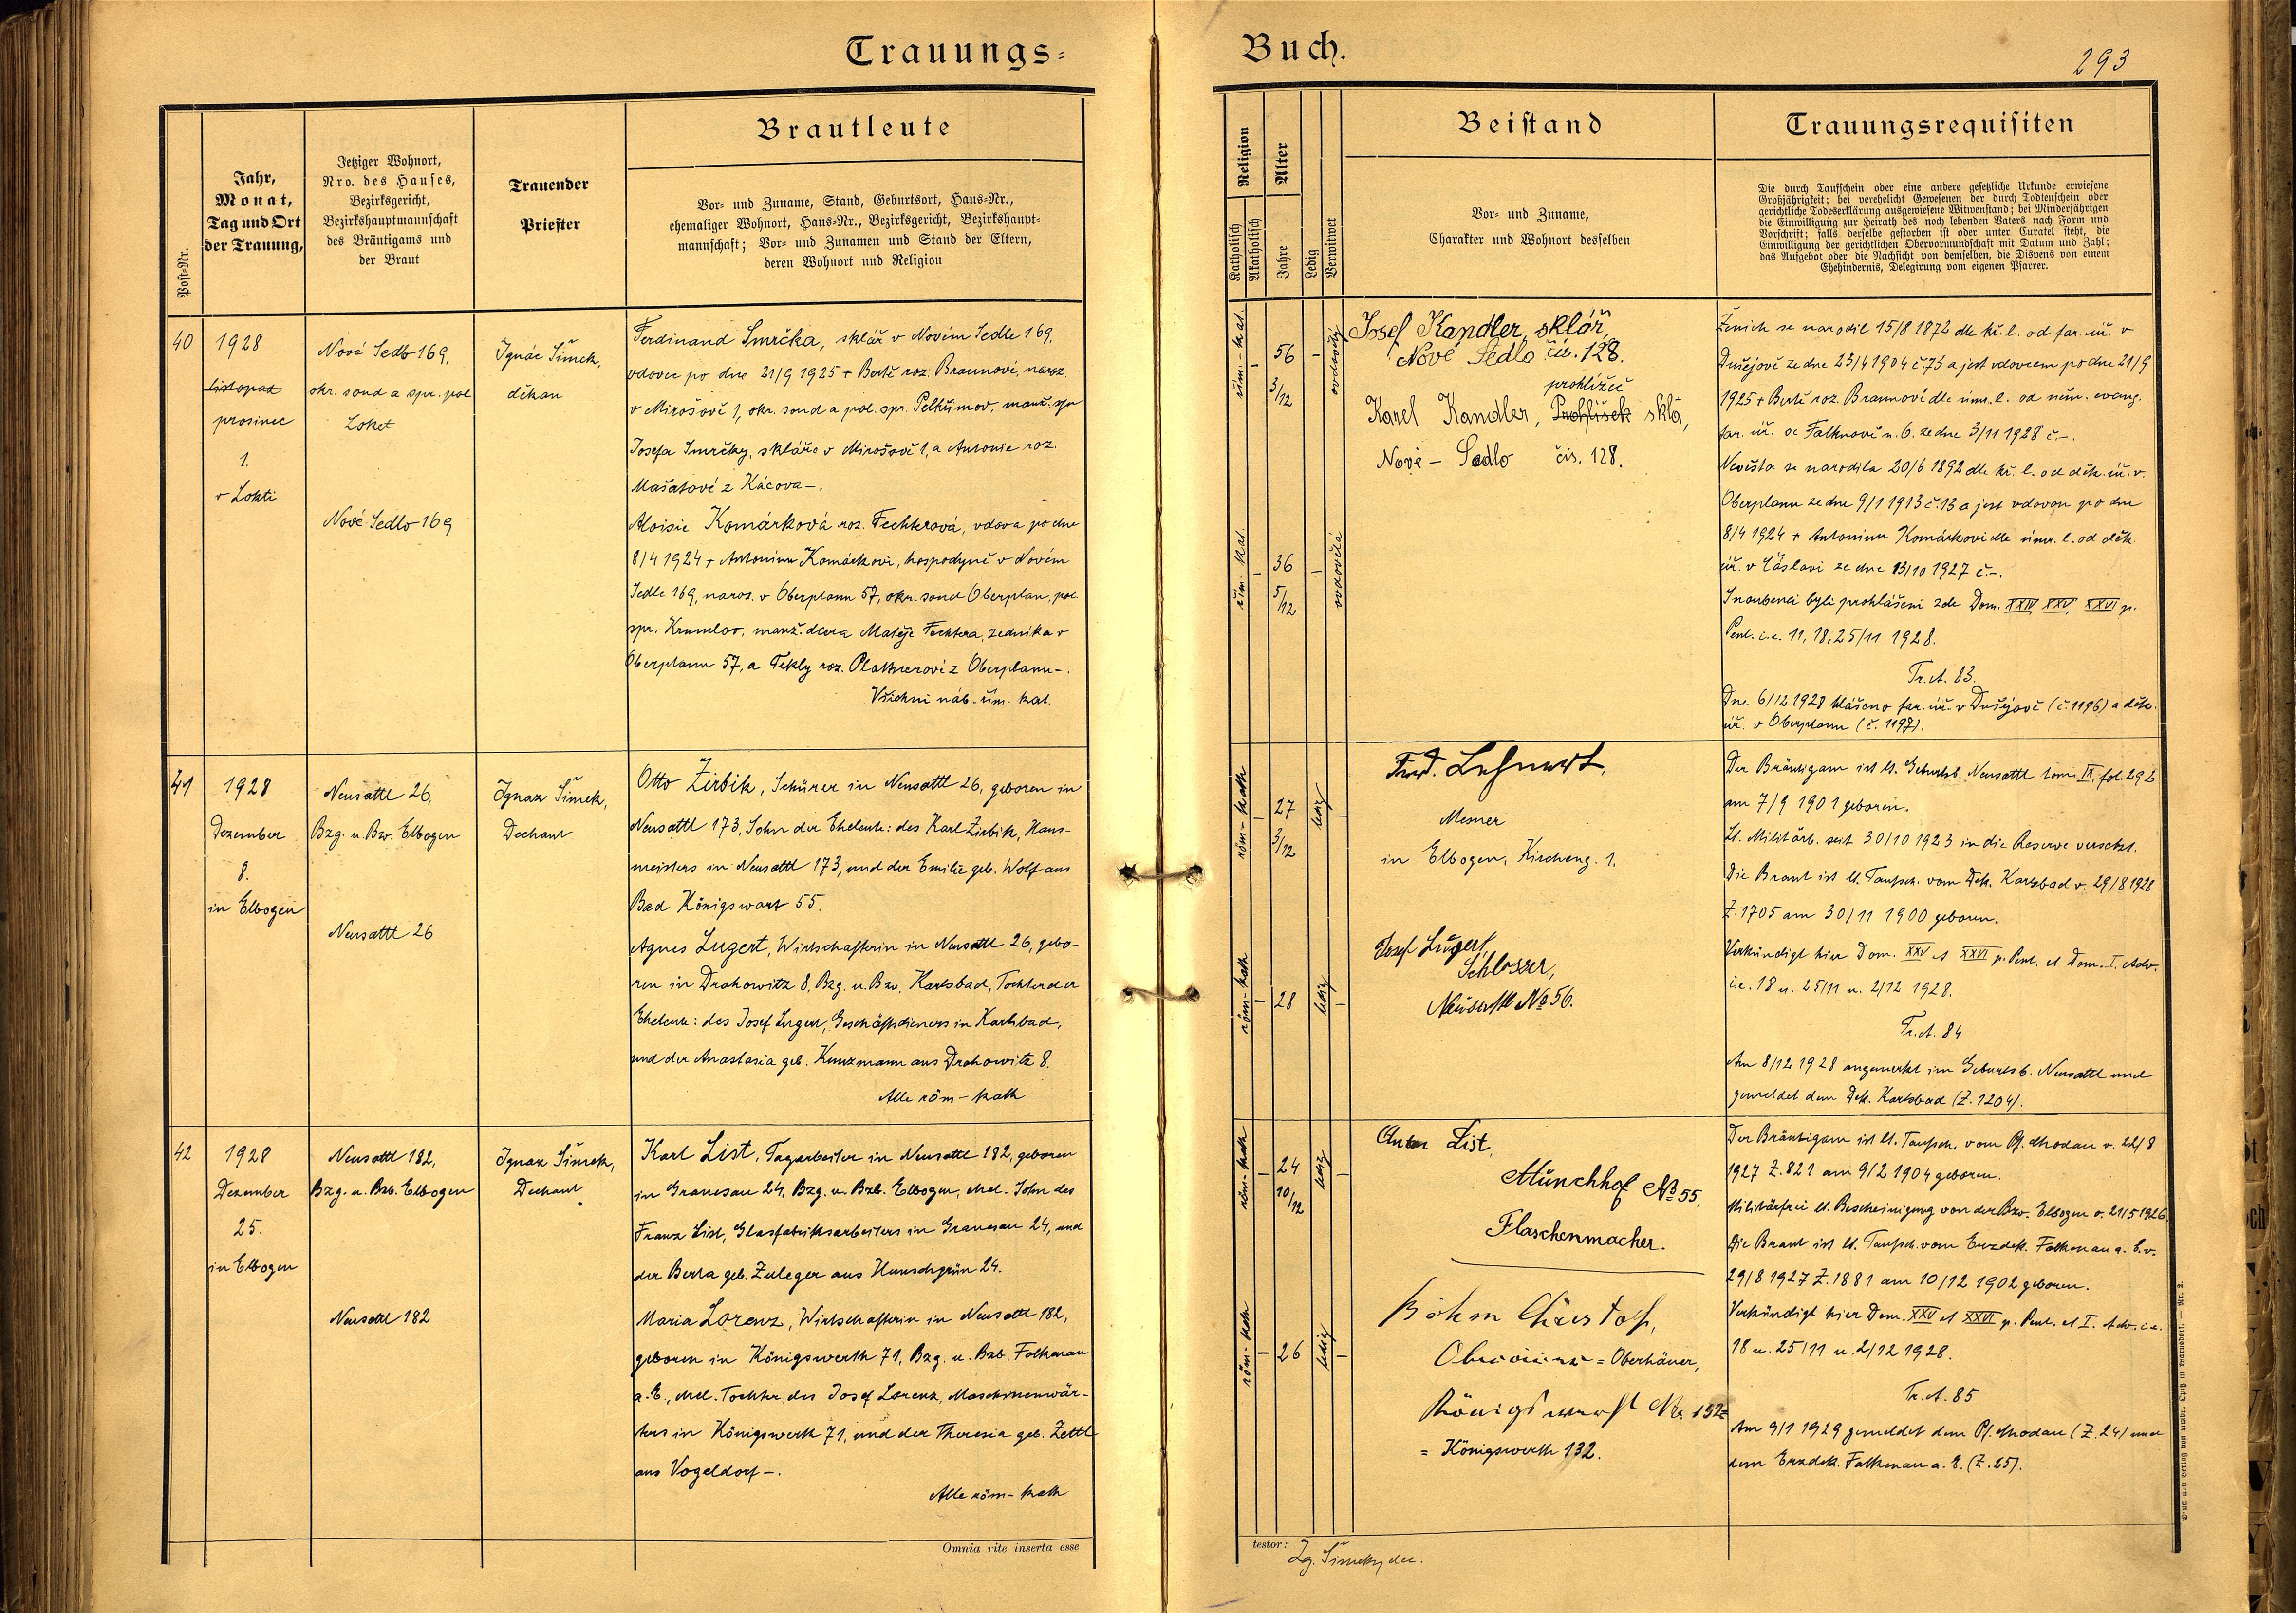 Trauungs-
Buch.
293
Post-Nr.
Jahr,
Monat,
Tag und Ort
der Trauung,
Jetziger Wohnort,
Nro. des Hauses,
Bezirksgericht,
Bezirkshauptmannschaft
des Bräutigams und
der Braut
Trauender
Priester
Brautleute
Vor- und Zuname, Stand, Geburtsort, Haus-Nr.,
ehemaliger Wohnort, Haus-Nr., Bezirksgericht, Bezirkshaupt-
mannschaft; Vor- und Zunamen und Stand der Eltern,
deren Wohnort und Religion
Religion
Katholisch
Akatholisch
Alter
Jahre
Ledig
Verwitwet
Beistand
Vor- und Zuname,
Charakter und Wohnort desselben
Trauungsrequisiten
Die durch Taufschein oder eine andere gesetzliche Urkunde erwiesene
Großjährigkeit; bei verehelicht Gewesenen der durch Todtenschein oder
gerichtliche Todeserklärung ausgewiesene Witwenstand; bei Minderjährigen
die Einwilligung zur Heirath des noch lebenden Vaters nach Form und
Vorschrift; falls derselbe gestorben ist oder unter Curatel steht, die
Einwilligung der gerichtlichen Obervormundschaft mit Datum und Zahl;
das Aufgebot oder die Nachsicht von demselben, die Dispens von einem
Ehehindernis, Delegirung vom eigenen Pfarrer.
40
1928
listopad
prosinec
1.
v Lokti
Nové Sedlo 169,
okr. soud a spr. pol
Loket
Nové Sedlo 169
Ignác Šimek,
děkan
Ferdinand Smrčka, sklář v Novém Sedle 169,
vdovec po dne 21/9 1925 + Bertě roz. Braunové, naroz.
v Mirošově 1, okr. soud a pol. spr. Pelhřimov, manž. syn
Josefa Smrčky, skláře v Mirošově 1, a Antonie roz.
Mašatové z Kácova -.
Aloisie Komárková roz. Fechterová, vdova po dne
8/4 1924 + Antonínu Komárkovi, hospodyně v Novém
Sedle 169, naroz. v Oberplanu 57, okr. soud Oberplan, pol.
spr. Krumlov, manž. dcera Matěje Fechtera, zedníka v
Oberplanu 57, a Tekly roz. Plaknerové z Oberplanu -.
Všichni náb. řím. kat.
řím.-kat.
-
56
3/12
-
ovdovělý
řím. kat.
-
36
5/12
-
ovdovělá
Josef Kandler, sklář,
Nové Sedlo čís. 128.
prohlížeč
Karel Kandler, Prohlísek skla,
Nové - Sedlo čís. 128.
Ženich se narodil 15/8 1872 dle kř. l. od far. úř. v
Dušejově ze dne 23/4 1904 č. 73 a jest vdovcem po dne 21/9
1925 + Bertě roz. Braunové dle úmr. l. od něm. evang.
far. úř. ve Falknově n. O. ze dne 3/11 1928 č. -.
Nevěsta se narodila 20/6 1892 dle kř. l. od děk. úř. v
Oberplanu ze dne 9/1 1913 č. 13 a jest vdovou po dne
8/4 1924 + Antonínu Komárkovi dle úmr. l. od děk.
úř. v Čáslavi ze dne 13/10 1927 č. -.
Snoubenci byli prohlášeni zde Dom. XXIV, XXV, XXVI p.
Pent. i.e. 11, 18, 25/11 1928.
Tr. A. 83.
Dne 6/12 1928 hlášeno far. úř. v Dušejově (č. 1196) a děk.
úř. v Oberplanu (č. 1197).
41
1928
Dezember
8.
in Elbogen
Neusattl 26,
Bzg. u. Bzv. Elbogen
Neusattl 26
Ignaz Šimek,
Dechant
Otto Zirbik, Schürer in Neusattl 26, geboren in
Neusattl 173, Sohn der Eheleute: des Karl Zirbik, Haus-
meisters in Neusattl 173, und der Emilie geb. Wolf aus
Bad Königswart 55.
Agnes Lugert, Wirtschafterin in Neusattl 26, gebo-
ren in Drahowitz 8, Bzg. u. Bzv. Karlsbad, Tochter der
Eheleute: des Josef Lugert, Geschäftsdieners in Karlsbad,
und der Anastasia geb. Kunzmann aus Drahowitz 8.
Alle röm-kath
röm-kath
-
27
3/12
ledig
-
röm-kath
-
28
ledig
-
Ferd. Lehnert,
Mesner
in Elbogen, Kircheng. 1.
Josef Lugert
Schlosser,
Neusattl No 56.
Der Bräutigam ist lt. Geburtsb. Neusattl tom. IX. fol. 296
am 7/9 1901 geboren.
Lt. Militärb. seit 30/10 1923 in die Reserve versetzt.
Die Braut ist lt. Taufsch. vom Dek. Karlsbad v. 29/8 1928
Z. 1705 am 30/11 1900 geboren.
Verkündigt hier Dom. XXV et XXVI p. Pent. et Dom. I. Adv.
i.e. 18 u. 25/11 u. 2/12 1928.
Tr. A. 84
Am 8/12 1928 angemerkt im Geburtsb. Neusattl und
gemeldet dem Dek. Karlsbad (Z. 1204).
42
1928
Dezember
25.
in Elbogen
Neusattl 182,
Bzg. u. Bzb. Elbogen
Neusattl 182
Ignaz Šimek,
Dechant
Karl List, Tagarbeiter in Neusattl 182, geboren
in Granesau 24, Bzg. u. Bzb. Elbogen, ehel. Sohn des
Franz List, Glasfabriksarbeiters in Granesau 24, und
der Berta geb. Zuleger aus Hunschgrün 24.
Maria Lorenz, Wirtschafterin in Neusattl 182,
geboren in Königswerth 71, Bzg. u. Bzb. Falkenau
a. E., ehel. Tochter des Josef Lorenz, Maschinenwär-
ters in Königswerth 71, und der Theresia geb. Zettl
aus Vogeldorf -.
Alle röm-kath
röm-kath
-
24
10/12
ledig
-
röm-kath
-
26
ledig
-
Anton List,
Münchhof No 55,
Flaschenmacher.
Böhm Christof,
= Oberhäuer,
Königswerth Nr. 132
= Königswerth 132.
Der Bräutigam ist lt. Taufsch. vom Pf. Chodau v. 22/8
1927 Z. 821 am 9/2 1904 geboren.
Militärfrei lt. Bescheinigung von der Bzv. Elbogen v. 21/5 1926
Die Braut ist lt. Taufsch. vom Erzdek. Falkenau a. E. v.
29/8 1927 Z. 1881 am 10/12 1902 geboren.
Verkündigt hier Dom. XXV et XXVI p. Pent. et I. Adv. i.e.
18 u. 25/11 u. 2/12 1928.
Tr. A. 85
Am 9/1 1929 gemeldet dem Pf. Chodau (Z. 24) und
dem Erzdek. Falkenau a. E. (Z. 25).
Omnia rite inserta esse
testor:
Ig. Šimek, dec.